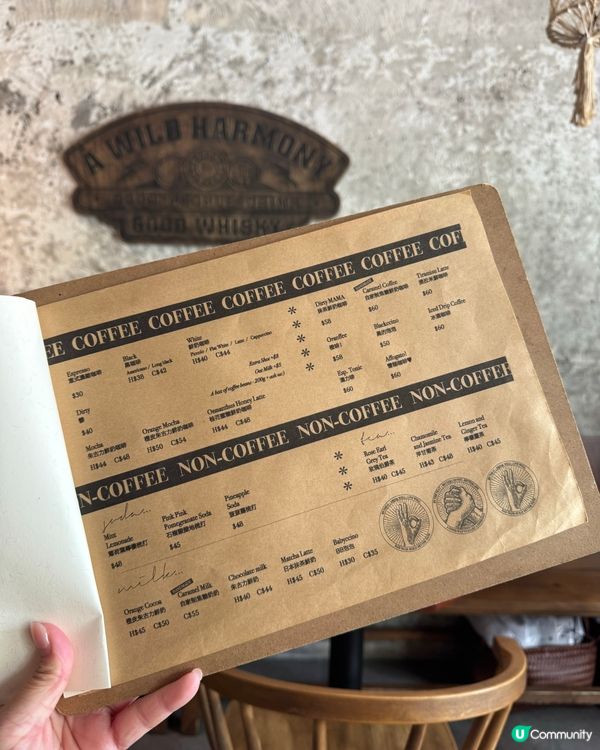 A WILD HARMONY
GOOD WHISKY
EE COFFEE COFFEE COFFEE COFFEE COFFEE COF
Espresso
意式濃縮咖啡
$30
Black
黑咖啡
Americano / Long black
H$38 C$42
White
鮮奶咖啡
Piccolo / Flat White / Latte / Cappuccino
H$40 C$44
Dirty
$40
Extra Shot +$5
Oat Milk +$5
A box of coffee beans - 200g + ask us:)
Mocha
朱古力鮮奶咖啡
H$44 C$48
Orange Mocha
橙皮朱古力鮮奶咖啡
H$50 C$54
Osmanthus Honey Latte
桂花蜜糖鮮奶咖啡
H$44 C$48
* Dirty MAMA
抹茶鮮奶咖啡
$58
Caramel Coffee
自家製焦糖鮮奶咖啡
$60
Tiramisu Latte
提拉米蘇咖啡
$60
Oraaffee
$58
Blackccino
黑的泡泡
$50
Iced Drip Coffee
冰滴咖啡
$60
Esp. Tonic
$60
Affogato!
雪糕咖啡♥
$60
N-COFFEE NON-COFFEE NON-COFFEE NON-COFFEE
soda...
Mint
Lemonade
薄荷葉檸檬梳打
$40
Pink Pink
Pomegranate Soda
石榴雜莓梳打
$45
Pineapple
Soda
菠蘿梳打
$48
tea...
Rose Earl
Grey Tea
玫瑰伯爵茶
H$40 C$45
Chamomile
and Jasmine Tea
洋甘菊茶
H$43 C$48
Lemon and
Ginger Tea
檸檬薑茶
H$40 C$45
milk...
Orange Cocoa
橙皮朱古力鮮奶
H$45 C$50
Caramel Milk
自家製焦糖鮮奶
C$55
Chocolate milk
朱古力鮮奶
H$40 C$44
Matcha Latte
日本抹茶鮮奶
H$45 C$50
Babyccino
BB泡泡
H$30 C$35
U Community